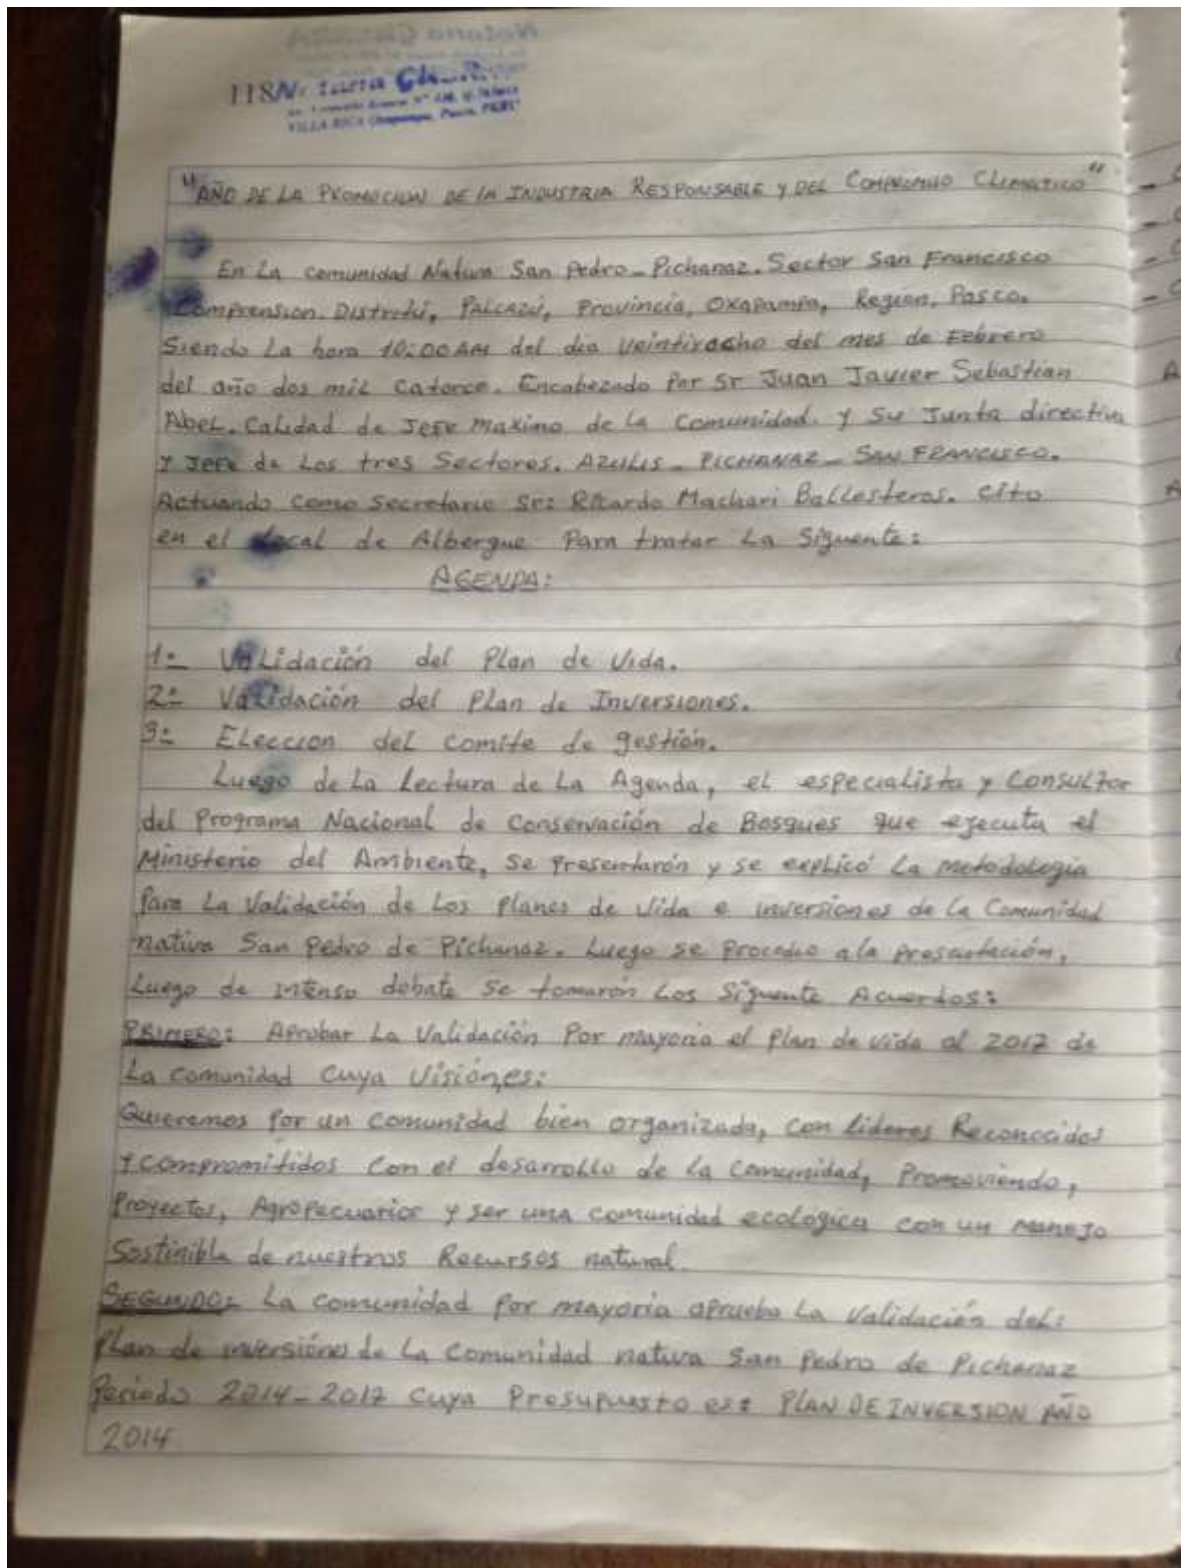 118 Notaria
VILLA RICA Oxapampa, Pasco, PERU
"AÑO DE LA PROMOCION DE LA INDUSTRIA RESPONSABLE Y DEL COMPROMISO CLIMATICO"
En La comunidad Nativa San Pedro - Pichanaz. Sector San Francisco
Comprension Distrital, Palcazú, Provincia, Oxapampa, Region, Pasco.
Siendo La hora 10:00 AM del dia veintiocho del mes de Febrero
del año dos mil catorce. Encabezado Por Sr Juan Javier Sebastian
Abel. Calidad de Jefe Maximo de la Comunidad. y Su Junta directiva
Y Jefe de Los tres Sectores. AZULIS - PICHANAZ - SAN FRANCISCO.
Actuando Como Secretario Sr: Ricardo Machari Ballesteros. cito
en el Local de Albergue Para tratar La Siguente:
AGENDA:
1:- Validación del Plan de Vida.
2:- Validación del Plan de Inversiones.
3:- Eleccion del comite de gestión.
Luego de La Lectura de La Agenda, el especialista y Consultor
del Programa Nacional de Conservación de Bosques que ejecuta el
Ministerio del Ambiente, se Presentarón y se explicó La metodologia
Para La Validación de Los Planes de Vida e inversiones de la Comunidad
nativa San Pedro de Pichanaz. Luego se Procedio a la Presentación,
Luego de intenso debate Se tomarón Los Siguente Acuerdos:
PRIMERO: Aprobar La Validación Por mayoria el Plan de vida al 2017 de
La Comunidad Cuya Visiónes:
Queremos Por un comunidad bien organizada, con Lideres Reconocidos
Y compromitidos Con el desarrollo de la comunidad, Promoviendo,
Proyectos, Agropecuarios y ser una comunidad ecologica con un manejo
Sostinible de nuestros Recursos natural.
SEGUNDO: La Comunidad Por mayoria aprueba La Validación del:
Plan de inversiónes de La Comunidad nativa San Pedro de Pichanaz
Periodo 2014-2017 Cuya Presupuesto es: PLAN DE INVERSION AÑO
2014